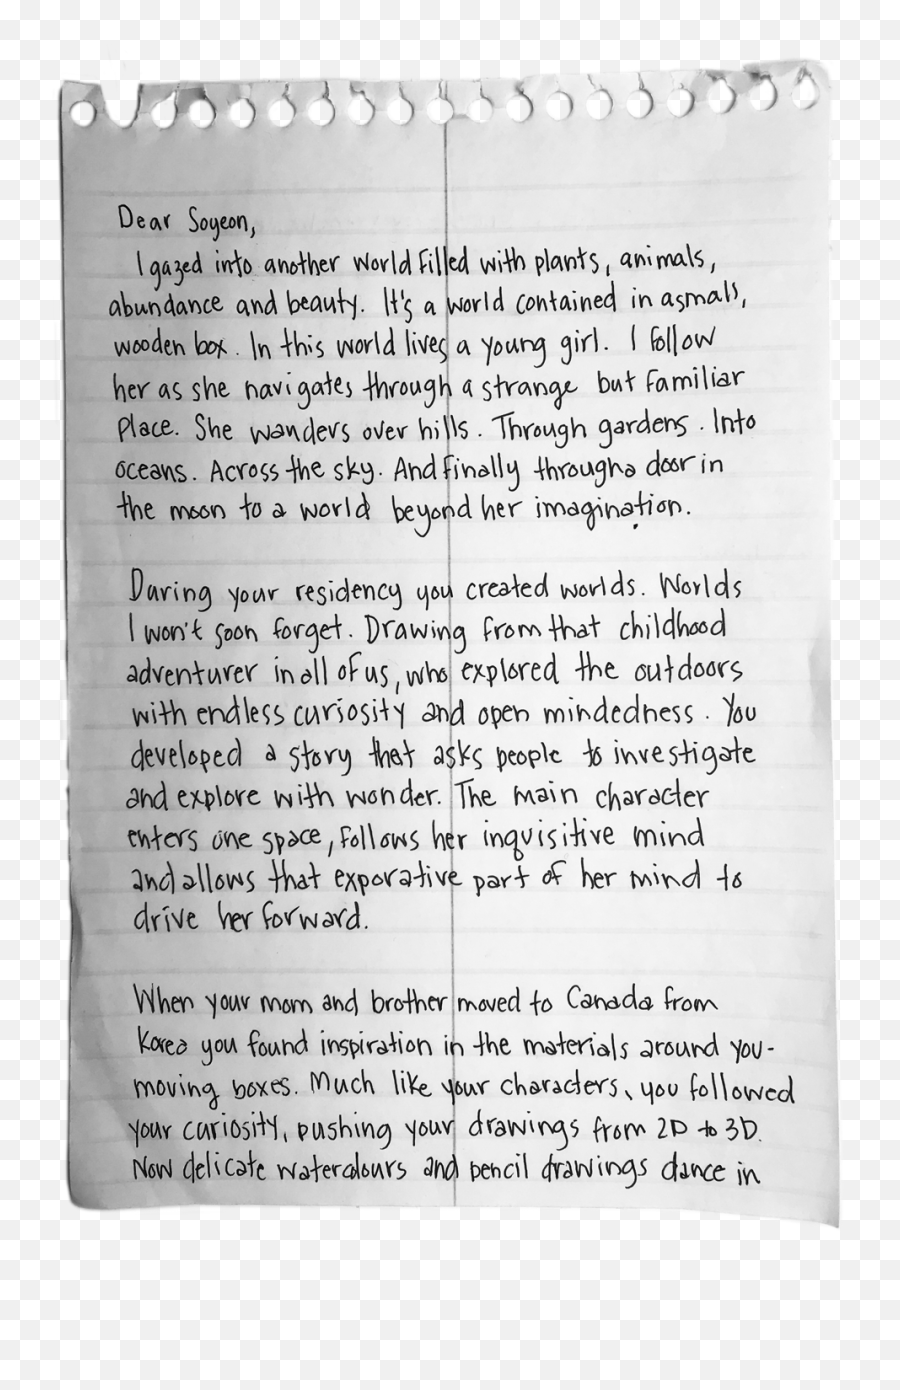 Dear Soyeon,
I gazed into another world filled with plants, animals,
abundance and beauty. It's a world contained in a small,
wooden box. In this world lives a young girl. I follow
her as she navigates through a strange but familiar
place. She wanders over hills. Through gardens. Into
oceans. Across the sky. And finally through a door in
the moon to a world beyond her imagination.
During your residency you created worlds. Worlds
I won't soon forget. Drawing from that childhood
adventurer in all of us, who explored the outdoors
with endless curiosity and open mindedness. You
developed a story that asks people to investigate
and explore with wonder. The main character
enters one space, follows her inquisitive mind
and allows that exporative part of her mind to
drive her forward.
When your mom and brother moved to Canada from
Korea you found inspiration in the materials around you-
moving boxes. Much like your characters, you followed
your curiosity, pushing your drawings from 2D to 3D.
Now delicate watercolours and pencil drawings dance in